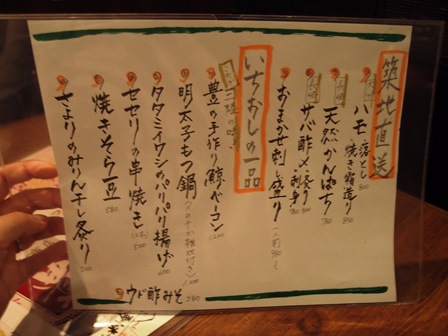 築地直送
ハモ 落とし 焼き霜造り 800
天然かんぱち 780
サバ酢〆・刺身 780 800
おまかせ刺し盛り 一人前 980〜
いちおしの一品
豊の手作り鯨ベーコン 1,200
明太子もつ鍋
タタミイワシのパリパリ揚げ
セセリの串焼き 500
焼きそら豆 580
さよりのみりん干し炙り 500
ウド酢みそ 580